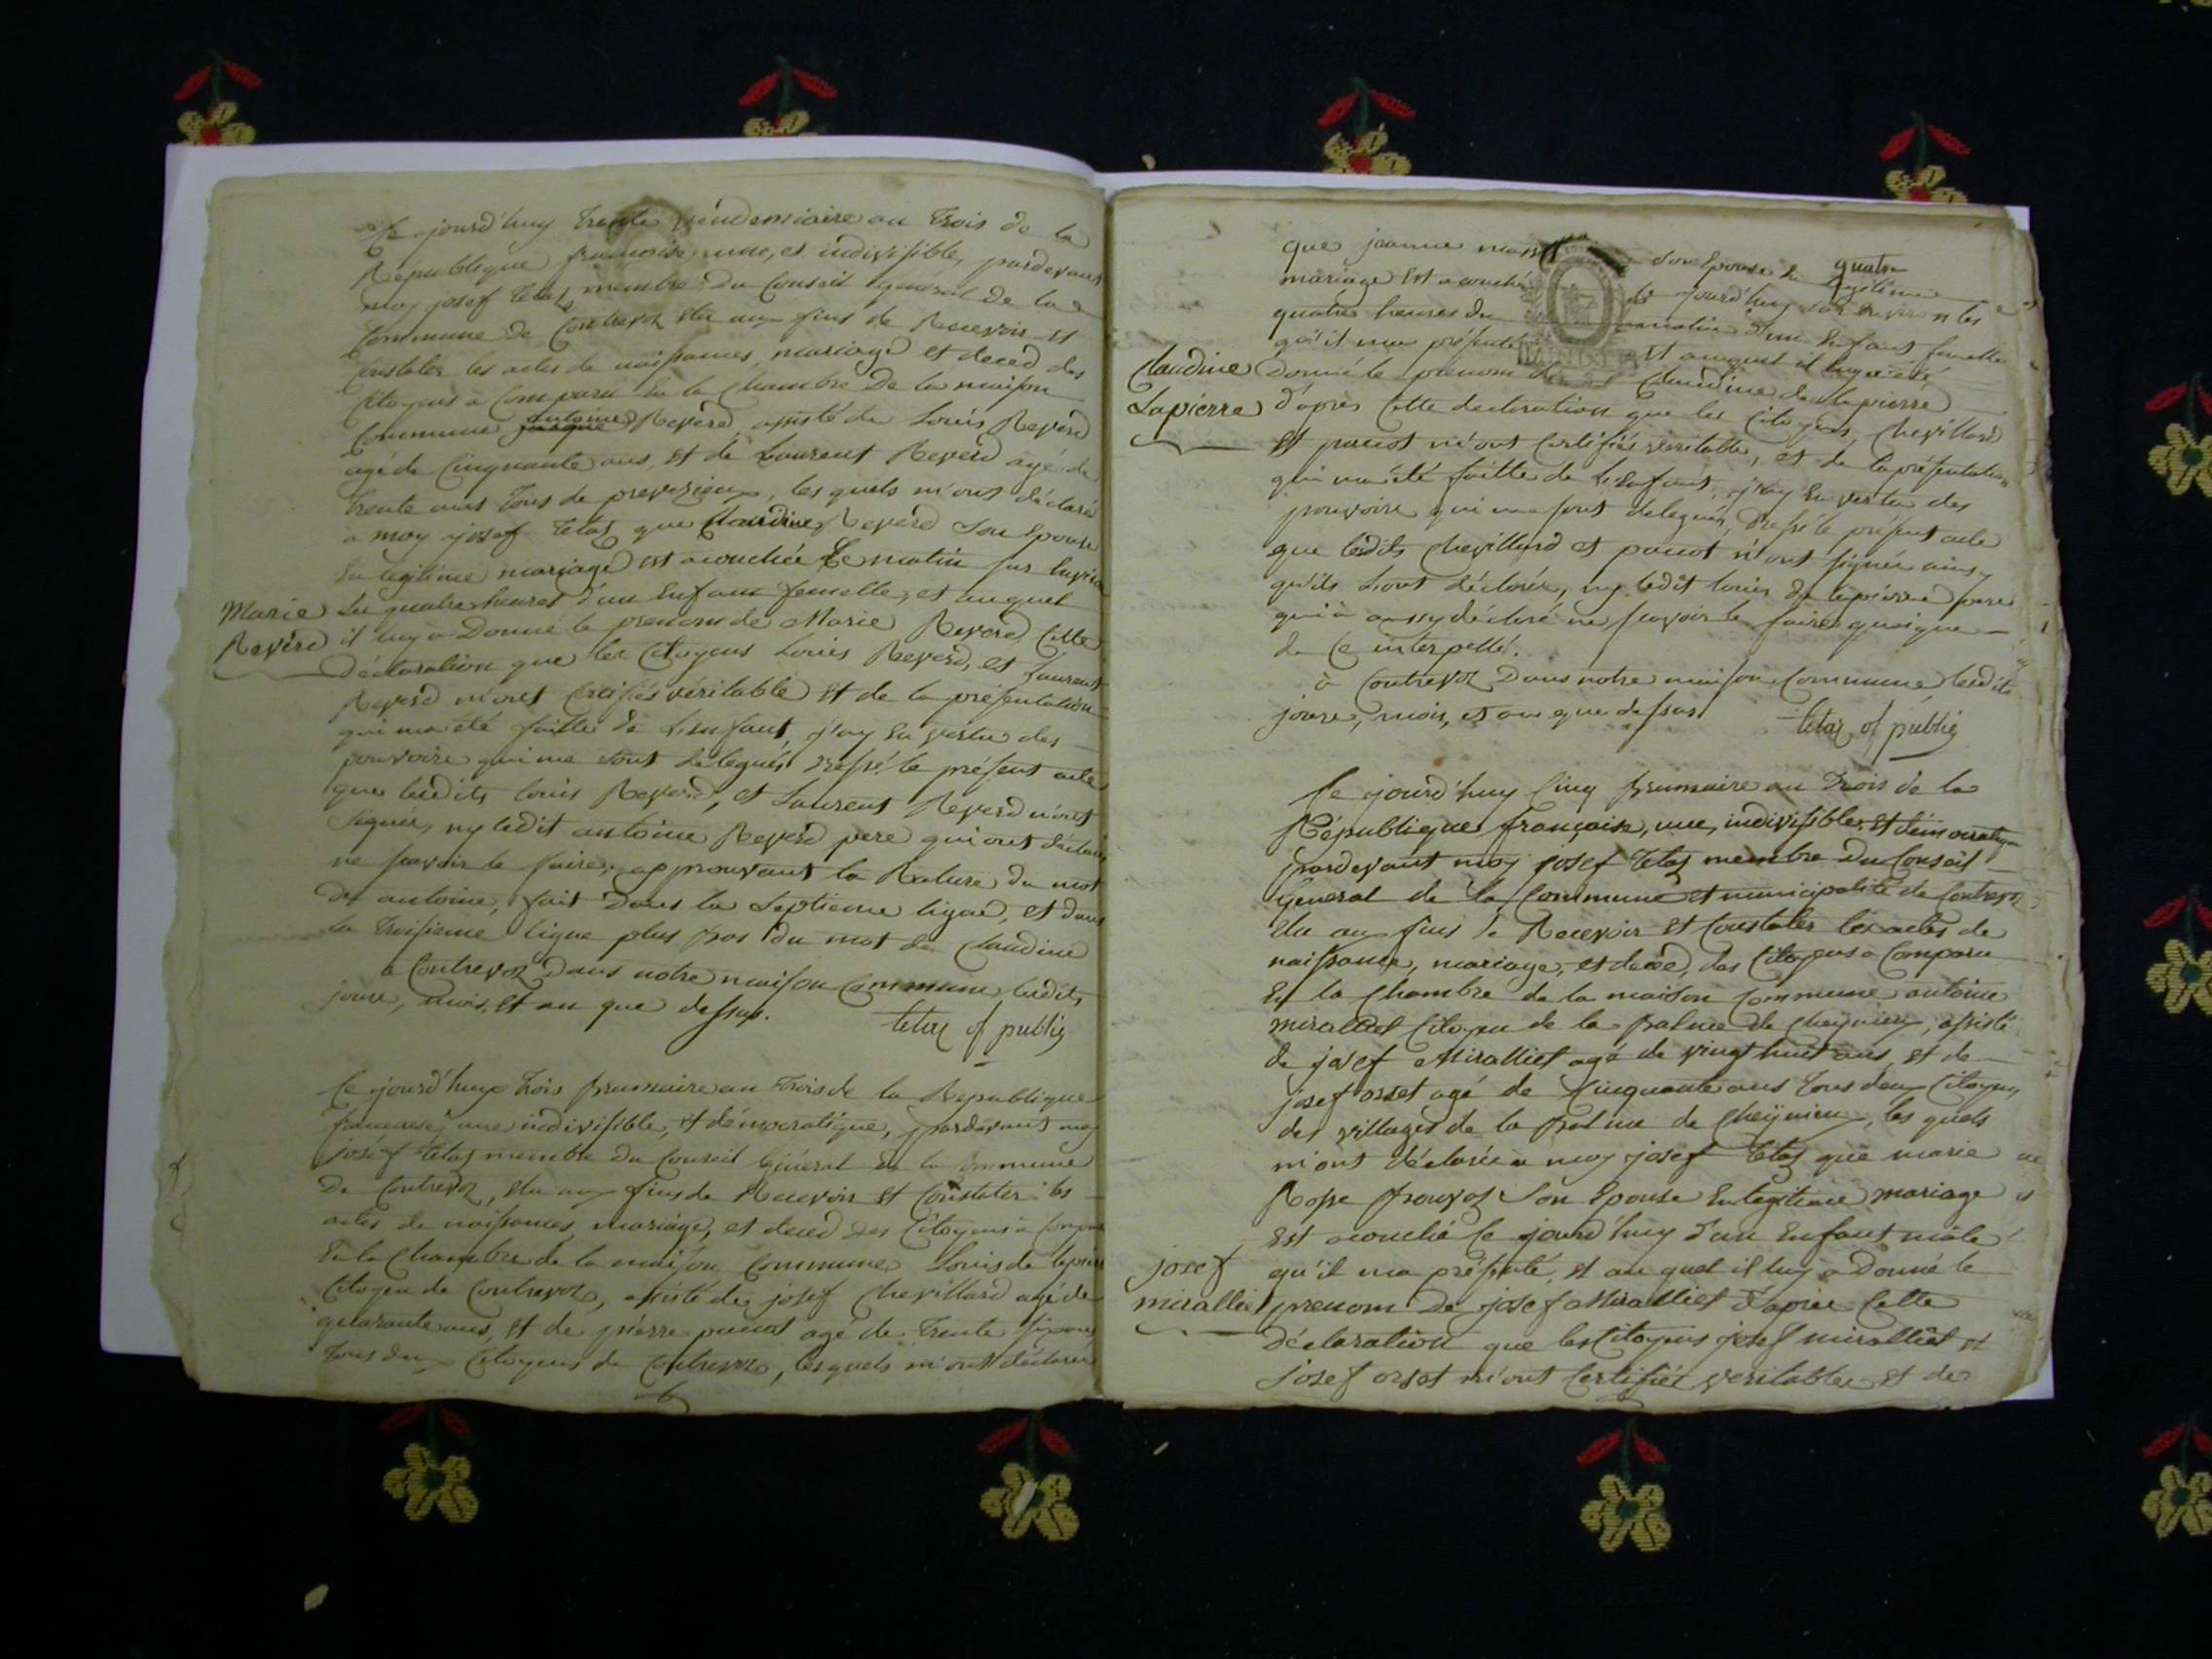 Ce jourd'huy trente vendemiaire an trois de la
Republique francoise, une, et indivisible, pardevant
moy josef tetaz membre Du Conseil general de la
Commune de Contrevoz elu aux fins de Recevoir et
Constater les actes de naissances, mariage et deced des
Citoyens a Comparu En la Chambre De la maison
Commune antoine Reverd assisté de Louis Reverd
agé de Cinquante ans, et de Laurent Reverd agé de
trente ans tous de preveyzieux, les quels m'ont déclarés
a moy josef tetaz que Claudine Reverd Son Epouse
En legitime mariage est acouchée Ce matin sur
les quatre heures d'un Enfant femelle, et auquel
Marie
Reverd
il luy a Donné le prenom de Marie Reverd, Cette
Déclaration que les Citoyens Louis Reverd, et Laurent
Reverd m'ont Certifiés véritable et de la présentation
qui ma été faitte de L'enfant, j'ay En vertu des
pouvoirs qui me sont delegués dressé le présent acte
que lesdits louis Reverd, et Laurent Reverd n'ont
signés, ny ledit antoine Reverd pere qui ont déclaré
ne scavoir le faire, approuvant la Rature du mot
de antoine, fait Dans la Septieme ligne, et dans
la troisieme ligne plus bas du mot de Claudine
a Contrevoz Dans notre maison Commune lesdits
jour, mois, et an que dessus. tetaz of public
Ce jourd'huy trois brumaire an trois de la Republique
francoise, une indivisible, et démocratique, pardevant moy
joséf tetaz membre du Conseil Général de la Commune
De Contrevoz, elu aux fins de Recevoir et Constater les
actes de naissances, mariage, et deced des Citoyens a Comparu
En la Chambre de la maison Commune Louis de lapierre
Citoyen de Contrevoz, assisté de josef Chevillard agé de
quarante ans, et de pierre panot agé de trente
tous deux Citoyens de Contrevoz, lesquels m'ont déclarés
que jeanne son Epouse En legitime
quatre
mariage Est acouchée Ce jourd'huy sur les
quatre heures du matin d'un Enfant femelle
qu'il ma présenté et auquel il luy a
Claudine
Lapierre
Donné le prenom de Claudine de lapierre
d'après Cette declaration que les Citoyens Chevillard
et panot m'ont Certifiés veritable, et de la présentation
qui ma été faitte de L'enfant, j'ay En vertu des
pouvoirs qui me sont delegués, dressé le présent acte
que lesdits Chevillard et panot n'ont signés ainsy
qu'ils L'ont déclarés, ny ledit louis de lapierre pere
qui a aussy déclaré ne scavoir le faire quoique
de Ce interpellé.
a Contrevoz Dans notre maison Commune lesdits
jours, mois, et an que dessus tetaz of public
Ce jourd'huy Cinq brumaire an trois de la
République françoise, une, indivisible, et démocratique
pardevant moy josef tetaz membre Du Conseil
General de la Commune et municipalité de Contrevoz
elu aux fins de Recevoir et Constater les actes de
naissance, mariage, et deced, des Citoyens a Comparu
En la Chambre de la maison Commune antoine
miralliet Citoyen de la balme de Cheignieu, assisté
de josef Miralliet agé de vingt huit ans, et de
josef orset agé de Cinquante ans tous deux Citoyens
des villages de la balme de Cheignieu, les quels
m'ont déclarés a moy josef tetaz que marie
Rosse Son Epouse En legitime mariage
Est acouchée Ce jourd'huy d'un Enfant mâle
josef
miralliet
qu'il ma présenté, et au quel il luy a Donné le
prenom De josef Miralliet d'après Cette
Déclaration que les Citoyens josef miralliet et
josef orset m'ont Certifiés veritable, et de